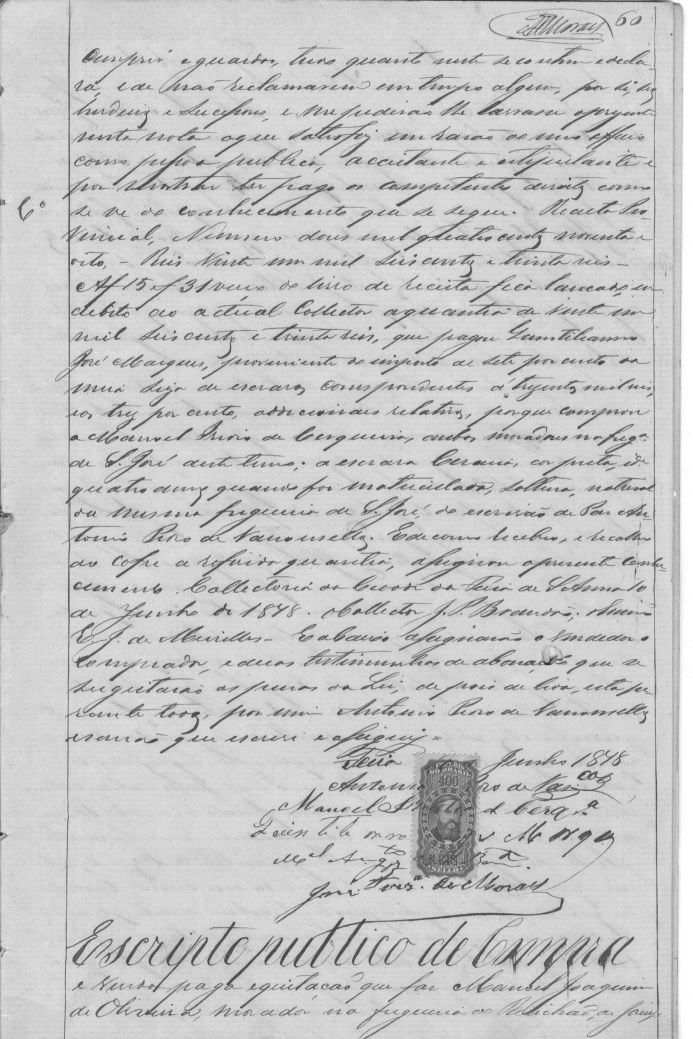 60
cumprir e guardar, tudo quanto neste se contem e declara,
e de não reclamarem em tempo algum, por si, seus
herdeiros e sucessores, e me pedirão lhe lavrasse o presente
nesta nota o que satisfiz em rasão de meu officio
como pessoa publica, acceitante e estipulante e
por mostrar ter pago os competentes direitos como
6º
se ve do conhecimento que se segue. Receita Provincial,
Numero dous mil quatro centos noventa e
oito, - Reis vinte um mil seis centos e trinta reis -
Af 15 of 31 verso do livro de receita fica lançado em
debito ao actual Collector a quantia de vinte um
mil seis centos e trinta reis, que pagou Quintiliano
José Marques, proveniente do imposto de sete por cento da
meia sisa de escravos correspondentes a trezentos mil reis,
e os trez por cento, addicionais relativos, porque comprou
a Manoel de Cerqueira, ambos moradores na freg.ª
de S. José deste termo; a escrava cor preta, de
quatro annos quando foi matriculada, solteira, natural
da mesma freguesia de S. José, do escrivão de Paz Antonio
Piro de Vasconsellos. E de como recebeu, e recolheu
ao cofre a referida quantia, assignou o presente conhecimento.
Collectoria da Cidade da Feira de S. Anna
de Junho de 1878. O Collector J. P. Brandão; o
E. J. de Meirelles - E abaixo assignarão o vendedor o
comprador, e duas testimunhas de abonação que se
sugeitarão as penas da Lei, depois de lido, este perante
todos, por mim Antonio Piro de Vasconsellos
escrivão que escrevi e assignei =
Feira Junho 1878
Antonio de Vas.cos
Manoel de Cerq.ª
M.el
José Ferr.ª de Moraes
IMPERIO
DO BRASIL
400
Escripto publico de Compra
e venda paga e quitação que faz Manoel Joaquim
de Oliveira, morador na freguesia do Riachão, de